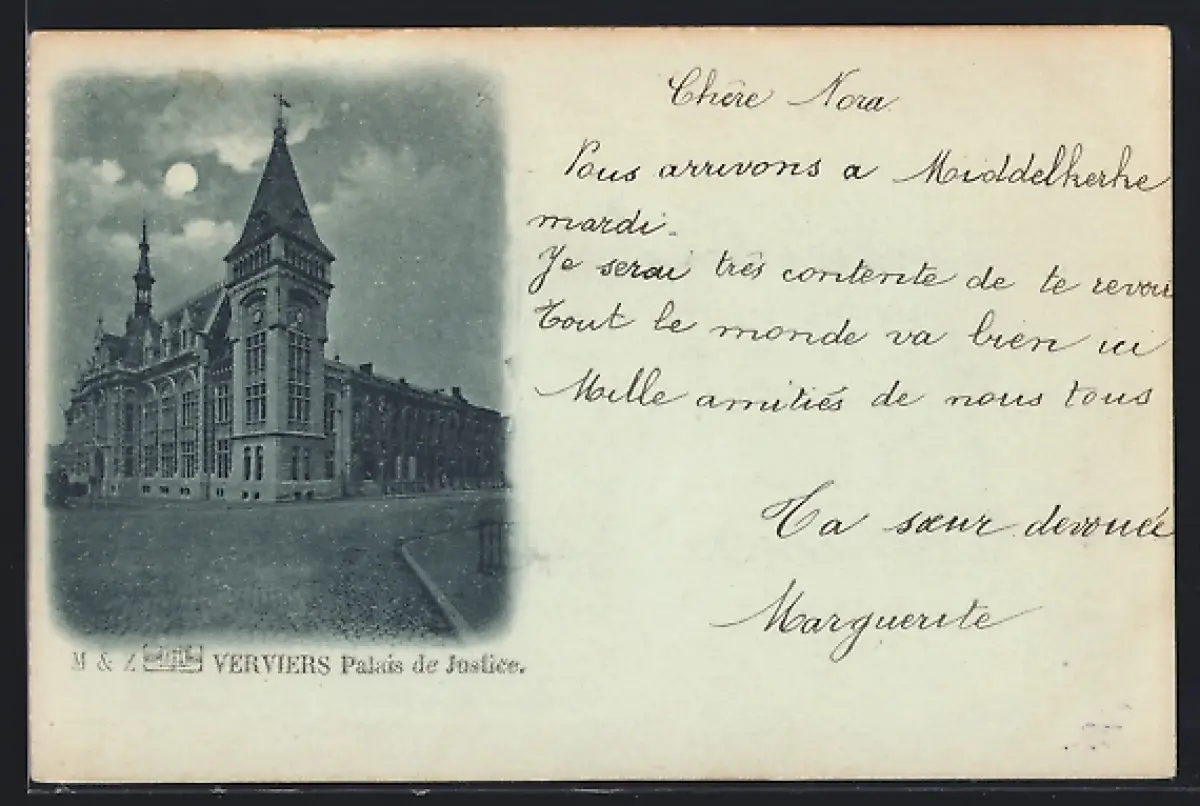 Chère Nora
Nous arrivons a Middelkerke
mardi.
Je serai très contente de te revoir
Tout le monde va bien ici
Mille amitiés de nous tous
Ta sœur devouée
Marguerite
M & Z VERVIERS Palais de Justice.